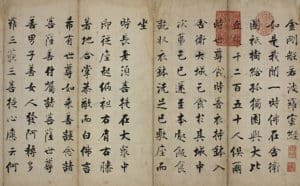 金剛般若波羅蜜經
如是我聞一時佛在舍衛
國祇樹給孤獨園與大比
丘眾千二百五十人俱爾
時世尊食時著衣持鉢入
舍衛大城乞食於其城中
次第乞已還至本處飯食
訖收衣鉢洗足已敷座而
坐
時長老須菩提在大眾中
即從座起偏袒右肩右膝
著地合掌恭敬而白佛言
希有世尊如來善護念諸
菩薩善付囑諸菩薩世尊
善男子善女人發阿耨多
羅三藐三菩提心應云何